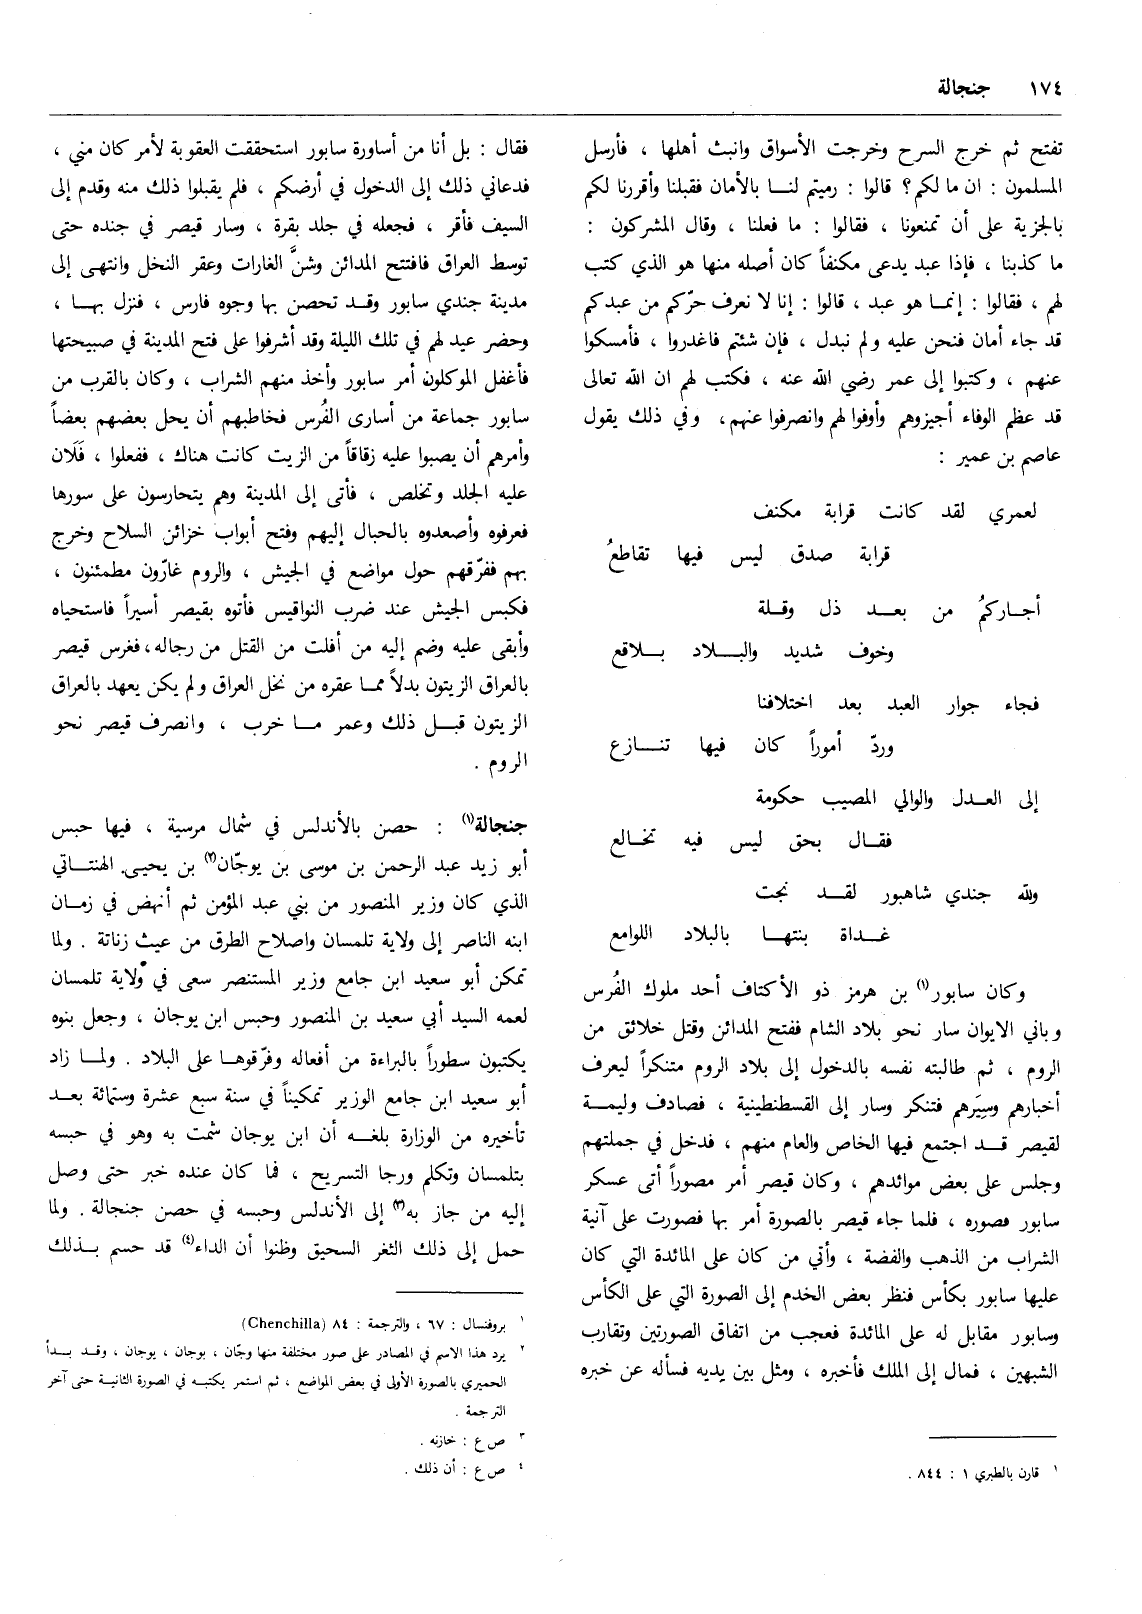 ١٧٤ جنجالة
تفتح ثم خرج السرح وخرجت الأسواق وانبث أهلها ، فأرسل
المسلمون : ان ما لكم؟ قالوا : رميتم لنا بالأمان فقبلنا وأقررنا لكم
بالجزية على أن تمنعونا ، فقالوا : ما فعلنا ، وقال المشركون :
ما كذبنا ، فإذا عبد يدعى مكنفاً كان أصله منها هو الذي كتب
لهم ، فقالوا : إنما هو عبد ، قالوا : إنا لا نعرف حرّكم من عبدكم
قد جاء أمان فنحن عليه ولم نبدل ، فإن شئتم فاغدروا ، فأمسكوا
عنهم ، وكتبوا إلى عمر رضي الله عنه ، فكتب لهم ان الله تعالى
قد عظم الوفاء أجيزوهم وأوفوا لهم وانصرفوا عنهم، وفي ذلك يقول
عاصم بن عمير :
لعمري لقد كانت قرابة مكنف
قرابة صدق ليس فيها تقاطعُ
أجاركمُ من بعد ذل وقلة
وخوف شديد والبلاد بلاقع
فجاء جوار العبد بعد اختلافنا
وردّ أموراً كان فيها تنازع
إلى العدل والوالي المصيب حكومة
فقال بحق ليس فيه تخالع
ولله جندي شاهبور لقد نجت
غداة بنتها بالبلاد اللوامع
وكان سابور(١) بن هرمز ذو الأكتاف أحد ملوك الفُرس
وباني الايوان سار نحو بلاد الشام ففتح المدائن وقتل خلائق من
الروم ، ثم طالبته نفسه بالدخول إلى بلاد الروم متنكراً ليعرف
أخبارهم وسِيَرهم فتنكر وسار إلى القسطنطينية ، فصادف وليمة
لقيصر قد اجتمع فيها الخاص والعام منهم ، فدخل في جملتهم
وجلس على بعض موائدهم ، وكان قيصر أمر مصوراً أتى عسكر
سابور فصوره ، فلما جاء قيصر بالصورة أمر بها فصورت على آنية
الشراب من الذهب والفضة ، وأتي من كان على المائدة التي كان
عليها سابور بكأس فنظر بعض الخدم إلى الصورة التي على الكأس
وسابور مقابل له على المائدة فعجب من اتفاق الصورتين وتقارب
الشبهين ، فمال إلى الملك فأخبره ، ومثل بين يديه فسأله عن خبره
١ قارن بالطبري ١ : ٨٤٤ .
فقال : بل أنا من أساورة سابور استحققت العقوبة لأمر كان مني ،
فدعاني ذلك إلى الدخول في أرضكم ، فلم يقبلوا ذلك منه وقدم إلى
السيف فأقر ، فجعله في جلد بقرة ، وسار قيصر في جنده حتى
توسط العراق فافتتح المدائن وشنَّ الغارات وعقر النخل وانتهى إلى
مدينة جندي سابور وقد تحصن بها وجوه فارس ، فنزل بها ،
وحضر عيد لهم في تلك الليلة وقد أشرفوا على فتح المدينة في صبيحتها
فأغفل الموكلون أمر سابور وأخذ منهم الشراب ، وكان بالقرب من
سابور جماعة من أسارى الفُرس فخاطبهم أن يحل بعضهم بعضاً
وأمرهم أن يصبوا عليه زقاقاً من الزيت كانت هناك ، ففعلوا ، فَلَان
عليه الجلد وتخلص ، فأتى إلى المدينة وهم يتحارسون على سورها
فعرفوه وأصعدوه بالحبال إليهم وفتح أبواب خزائن السلاح وخرج
بهم ففرّقهم حول مواضع في الجيش ، والروم غارّون مطمئنون ،
فكبس الجيش عند ضرب النواقيس فأتوه بقيصر أسيراً فاستحياه
وأبقى عليه وضم إليه من أفلت من القتل من رجاله، فغرس قيصر
بالعراق الزيتون بدلاً مما عقره من نخل العراق ولم يكن يعهد بالعراق
الزيتون قبل ذلك وعمر ما خرب ، وانصرف قيصر نحو
الروم .
جنجالة(١) : حصن بالأندلس في شمال مرسية ، فيها حبس
أبو زيد عبد الرحمن بن موسى بن يوجّان(٢) بن يحيى الهنتاتي
الذي كان وزير المنصور من بني عبد المؤمن ثم أنهض في زمان
ابنه الناصر إلى ولاية تلمسان واصلاح الطرق من عيث زناتة . ولما
تمكن أبو سعيد ابن جامع وزير المستنصر سعى في ولاية تلمسان
لعمه السيد أبي سعيد بن المنصور وحبس ابن يوجان ، وجعل بنوه
يكتبون سطوراً بالبراءة من أفعاله وفرّقوها على البلاد . ولما زاد
أبو سعيد ابن جامع الوزير تمكيناً في سنة سبع عشرة وستمائة بعد
تأخيره من الوزارة بلغه أن ابن يوجان شمت به وهو في حبسه
بتلمسان وتكلم ورجا التسريح ، فما كان عنده خبر حتى وصل
إليه من جاز به(٣) إلى الأندلس وحبسه في حصن جنجالة . ولما
حمل إلى ذلك الثغر السحيق وظنوا أن الداء(٤) قد حسم بذلك
١ بروفنسال : ٦٧ ، والترجمة : ٨٤ (Chenchilla)
٢ يرد هذا الاسم في المصادر على صور مختلفة منها وجّان ، بوجان ، يوجان ، وقد بدأ
الحميري بالصورة الأولى في بعض المواضع ، ثم استمر يكتبه في الصورة الثانية حتى آخر
الترجمة .
٣ ص ع : خازنه .
٤ ص ع : أن ذلك .